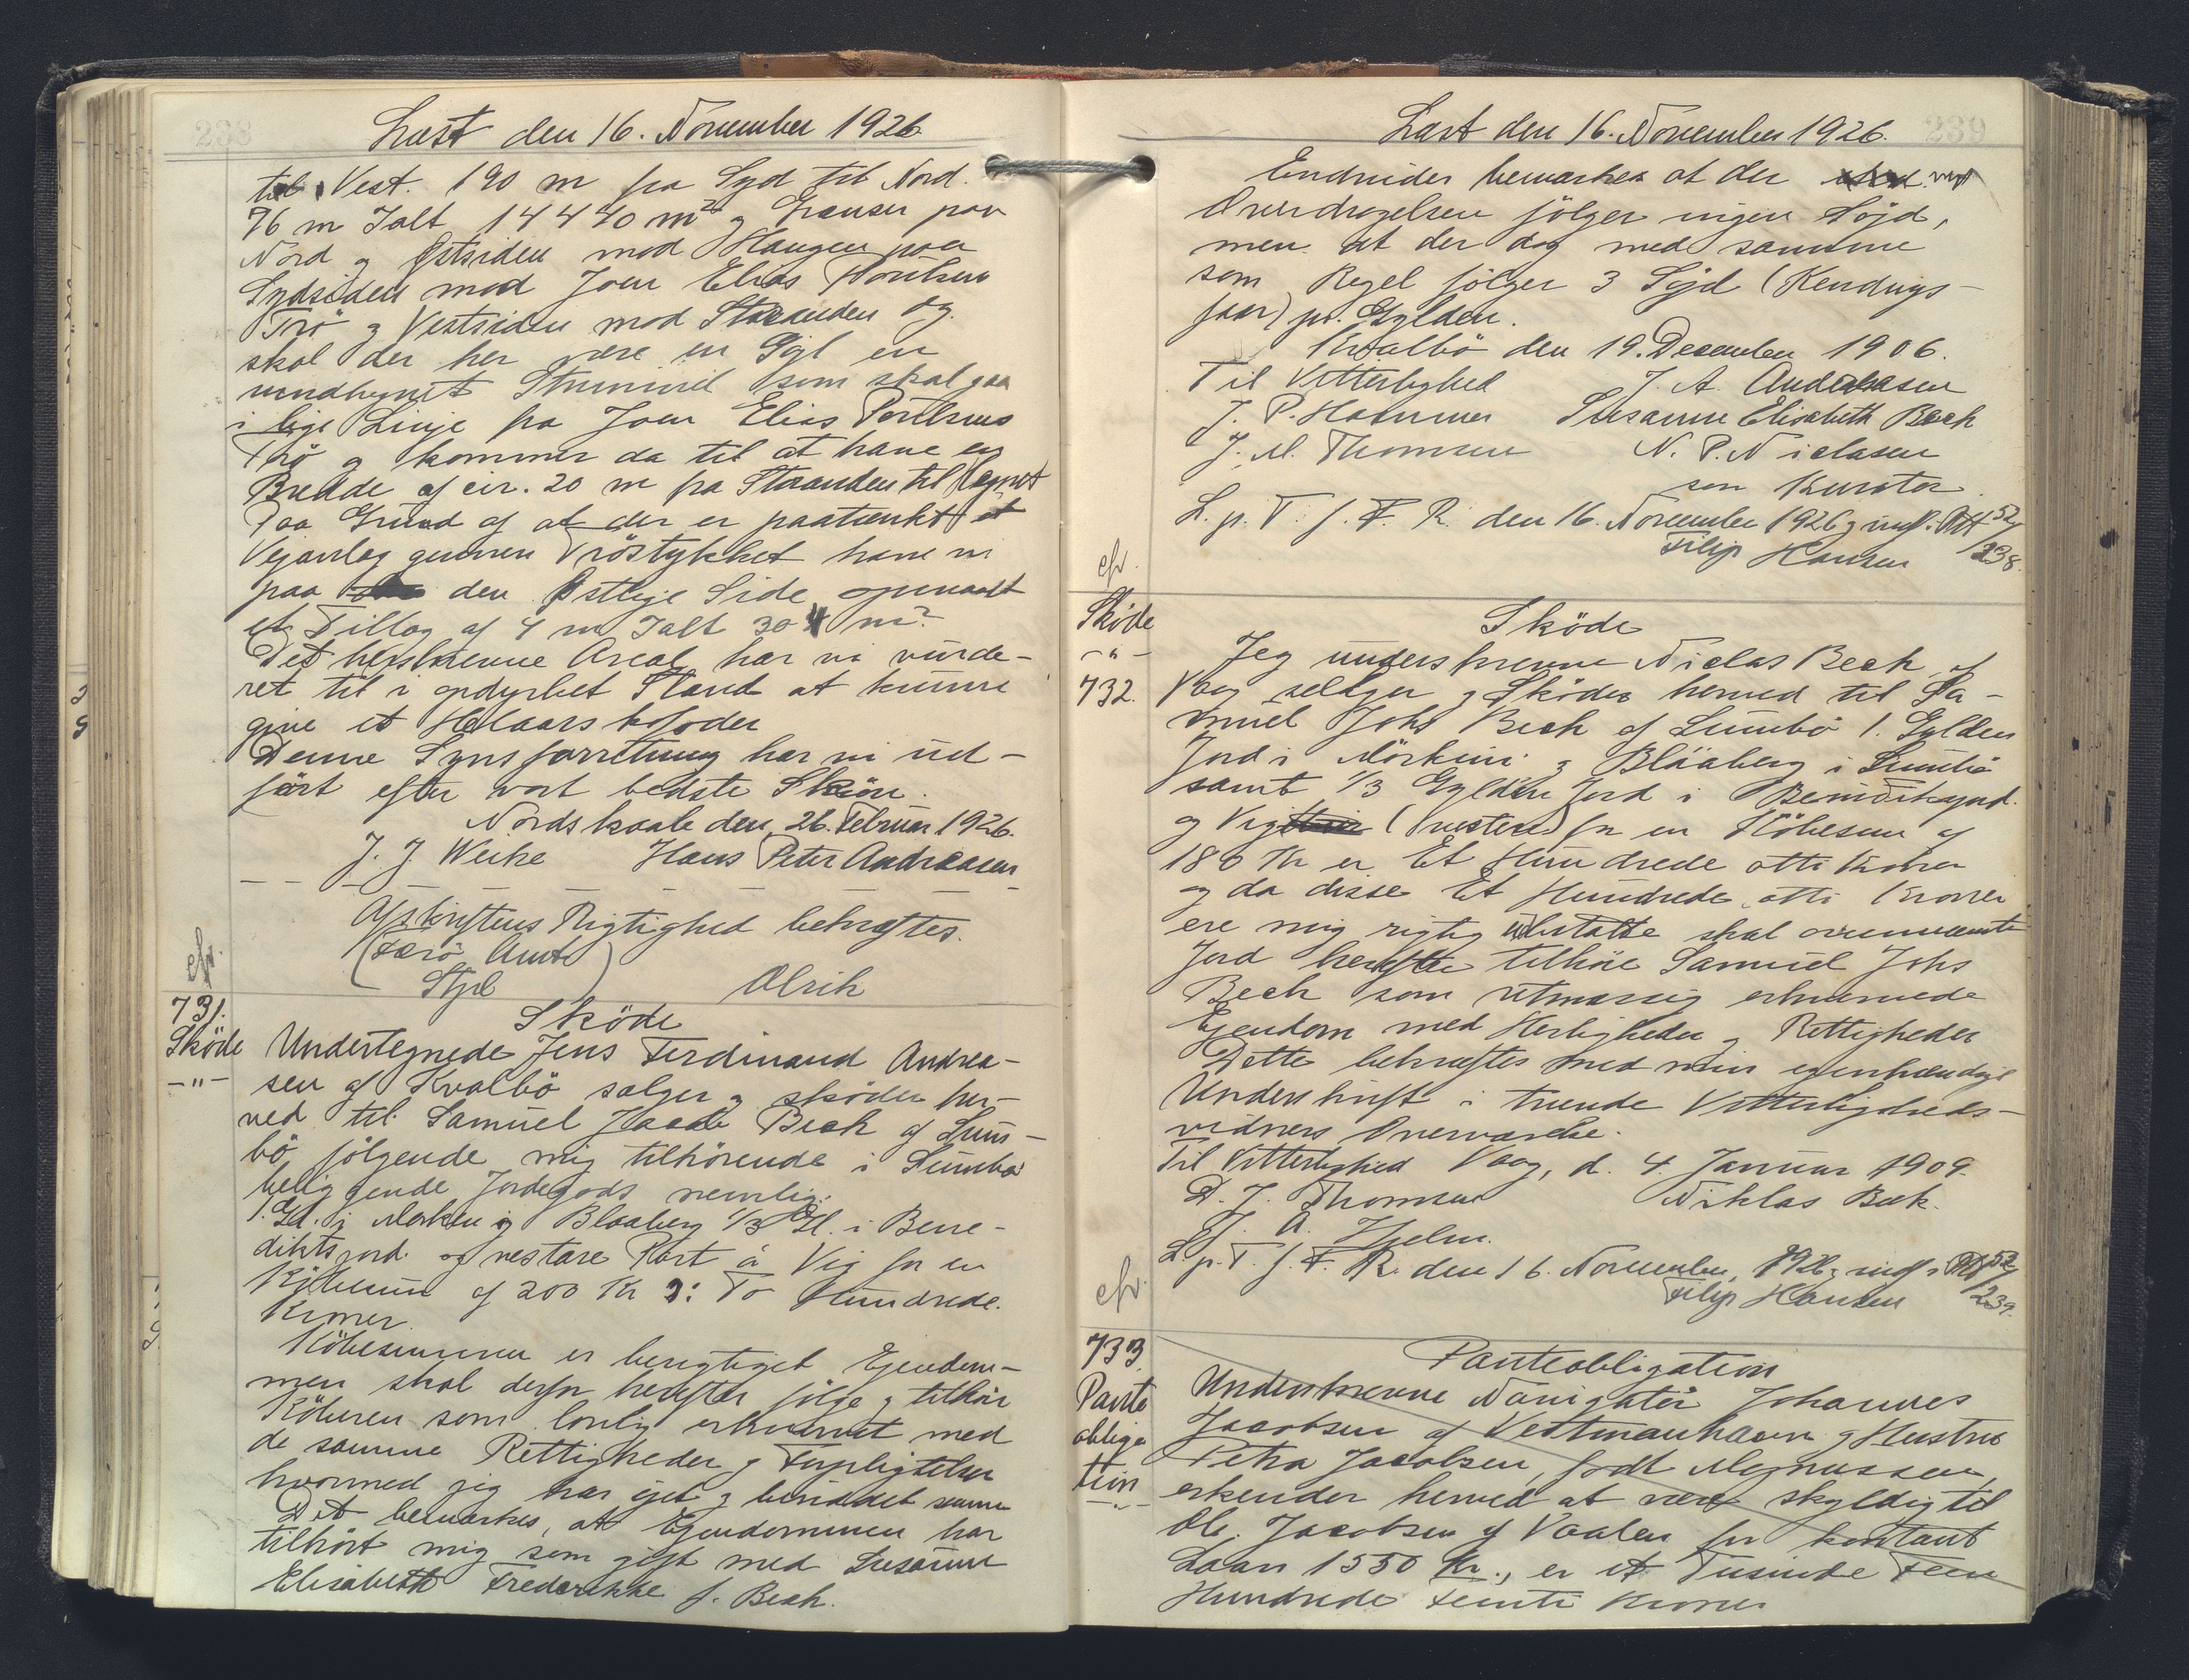 238
Læst den 16. November 1926
til Vest. 190 m fra Syd til Nord.
76 m Ialt 14440 m² og Grænser paa
Nord og Østsiden mod Haugen paa
Sydsiden mod Joen Elias Poulsens
Trö og Vestsiden mod Stranden og
skal der her være en Sögt en
som skal gaa
i lige Linje fra Joen Elias Poulsens
Trö og kommer da til at have en
Bredde af cir. 20 m fra Stranden til Hegnet
Paa Grund af at der er paatænkt et
Vejanlæg gennem Tröstykket have vi
paa den Østlige Side opmaalt
et Tillæg af 4 m Ialt 304 m²
Det herskrevne Areal har vi vurde-
ret til i opdyrket Stand at kunne
give et Helaars kofoder
Denne Synsforretning har vi ud-
fört efter vort bedste Skjön.
Nordskaale den 26. Februar 1926.
J. J. Weihe Hans Peter Andreasen
Afskriftens Rigtighed bekræftes.
(Færö Amt)
Stpl Olrik
cfr.
731.
Sköde
-"-
Sköde
Undertegnede Jens Ferdinand Andrea-
sen af Kvalbö sælger og sköder her-
ved til Samuel Jacob Bech af Sum-
bö fölgende mig tilhörende i Sumbö
beliggende Jordegods nemlig:
1. Gl. i Mörken og Blaaberg 1/3 Gl. i Bene-
diktsjord og vestare Part á Vig for en
Kjöbesum af 200 Kr ɔ: To Hundrede
Kroner.
Köbesummen er berigtiget Ejendom-
men skal derfor herefter fölge og tilhöre
Köberen som lovlig erhvervet med
de samme Rettigheder og Forpligtelser
hvormed jeg har ejet og besiddet samme
Det bemærkes, at Ejendommen har
tilhört mig som gift med Susanne
Elisabeth Frederikke f. Bech.
239
Læst den 16. November 1926.
Endvider bemærkes at der ved
Overdragelsen fölger ingen Söjd,
men at der dog med samme
som Regel fölger 3 Söjd (Kendings-
faar) pr. Gylden.
Kvalbö den 19. December 1906.
Til Vitterlighed J. A. Andreasen
J. P. Hammer Susanne Elisabeth Bech
J. M. Thomsen N. P. Niclasen
som Kurator
L. p. T. f. F. R. den 16. November 1926 og indf. i Ptt 52/238.
Filip Hansen
cfr.
Sköde
-"-
732.
Sköde
Jeg underskrevne Niclas Bech af
Vaag sælger og Sköder herved til Sa-
muel Johs Bech af Sumbö 1. Gylden
Jord i Mörkini og Bláaberg i Sumbö
samt 1/3 Gylden Jord i Benediktsjord
og Vig (vestere) for en Köbesum af
180 Kr er Et Hundrede otti Kroner
og da disse Et Hundrede otti Kroner
ere mig rigtig udbetalte skal ovennævnte
Jord herefter tilhöre Samuel Johs
Bech som retmæssig erhvervede
Ejendom med Herligheder og Rettigheder
Dette bekræftes med min egenhændige
Underskrift i tvende Vitterligheds-
vidners Overværelse.
Til Vitterlighed Vaag, d. 4. Januar 1909.
D. J. Thomsen Niklas Bek.
J. A. Hjelm.
L. p. T. f. F. R. den 16. November 1926 og indf. i Ptt 52/239.
Filip Hansen
cfr
733
Pante
obliga
tion
-"-
Panteobligation
Underskrevne Navigatör Johannes
Jacobsen af Vestmanhavn og Hustru
Petra Jacobsen, födt Magnussen,
erkender herved at være skyldig til
Ole Jacobsen af Vaalen for kontant
Laan 1550 Kr., er et Tusinde Fem
Hundrede femti Kroner